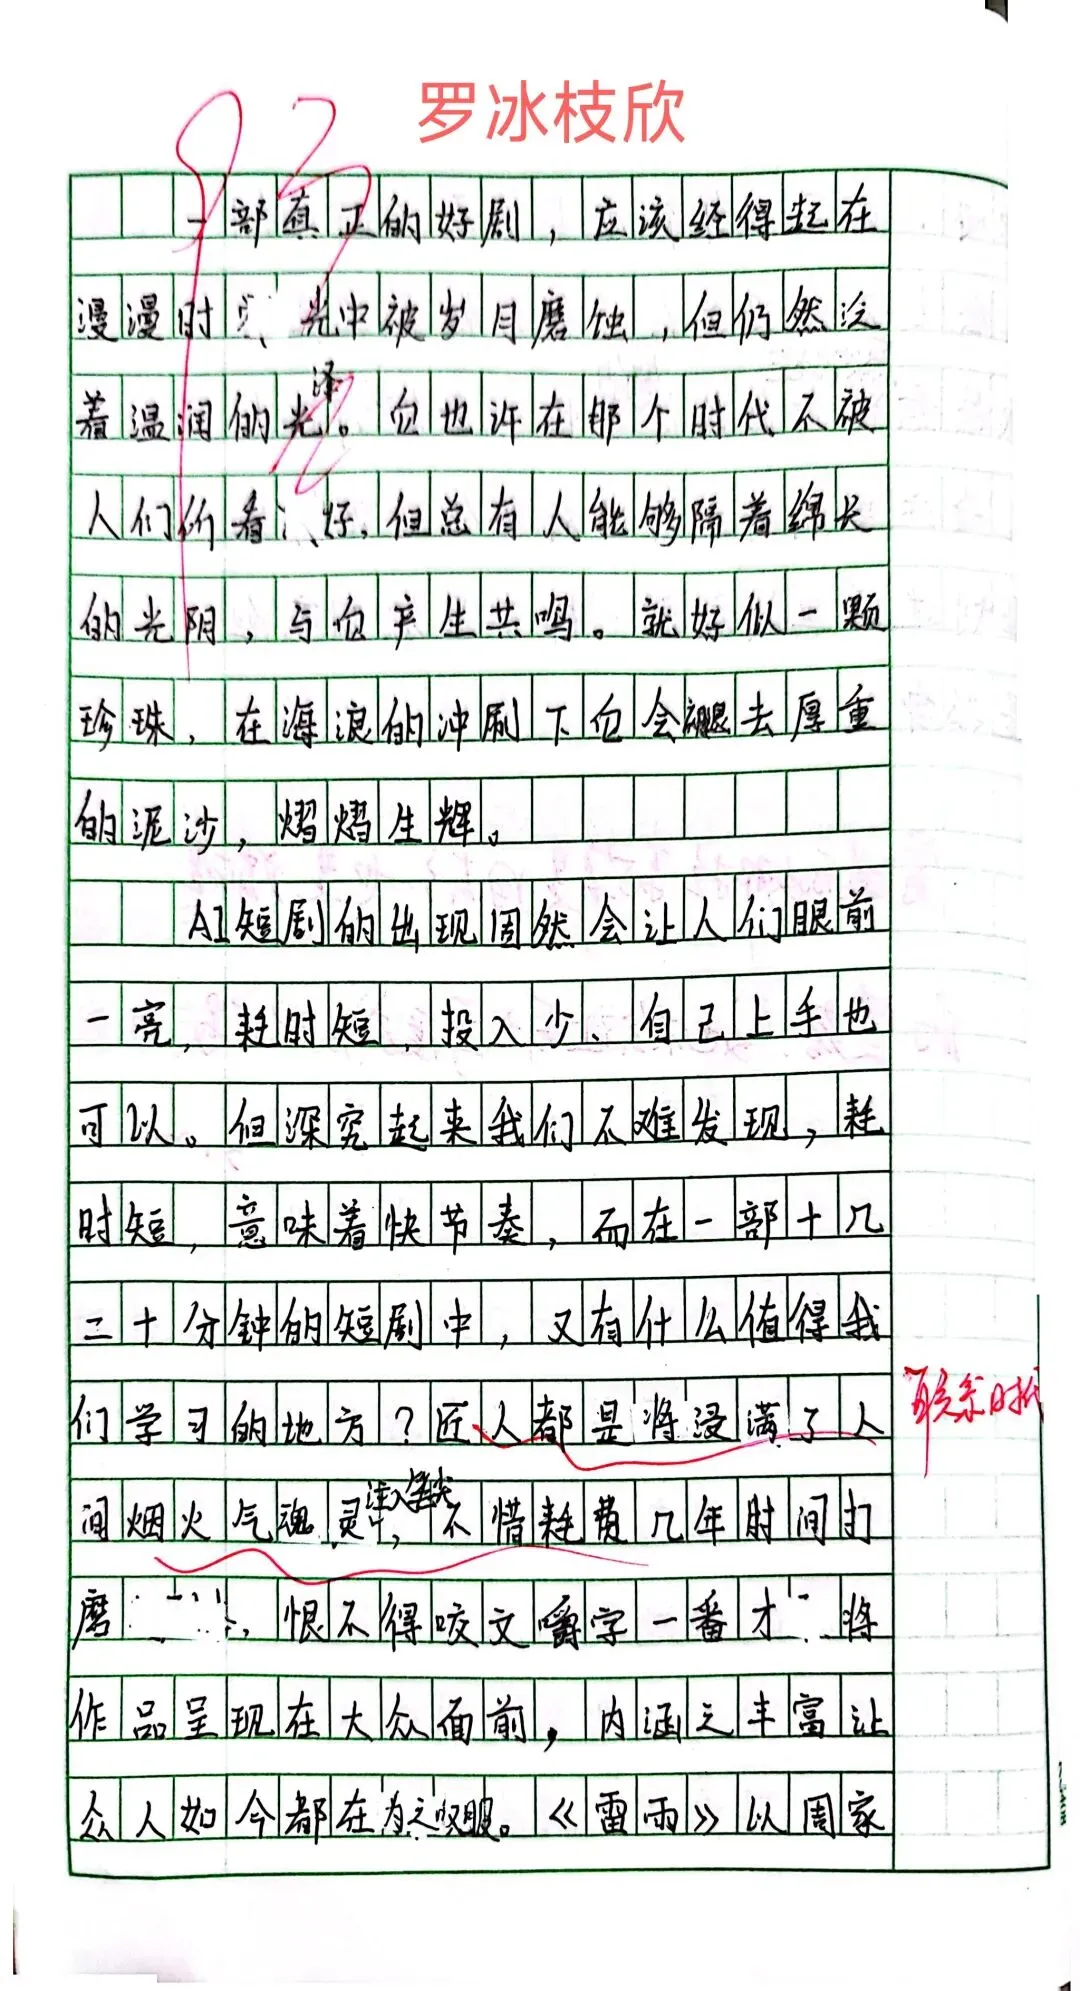 罗冰枝欣
一部真正的好剧，应该经得起在
漫漫时光中被岁月磨蚀，但仍然泛
着温润的光泽。它也许在那个时代不被
人们所看好，但总有人能够隔着绵长
的光阴，与它产生共鸣。就好似一颗
珍珠，在海浪的冲刷下它会褪去厚重
的泥沙，熠熠生辉。
AI短剧的出现固然会让人们眼前
一亮，耗时短，投入少、自己上手也
可以。但深究起来我们不难发现，耗
时短，意味着快节奏，而在一部十几
二十分钟的短剧中，又有什么值得我
们学习的地方？匠人都是将浸满了人
间烟火气魂灵注入笔尖，不惜耗费几年时间打
磨，恨不得咬文嚼字一番才将
作品呈现在大众面前，内涵之丰富让
众人如今都在为之叹服。《雷雨》以周家
联系时代